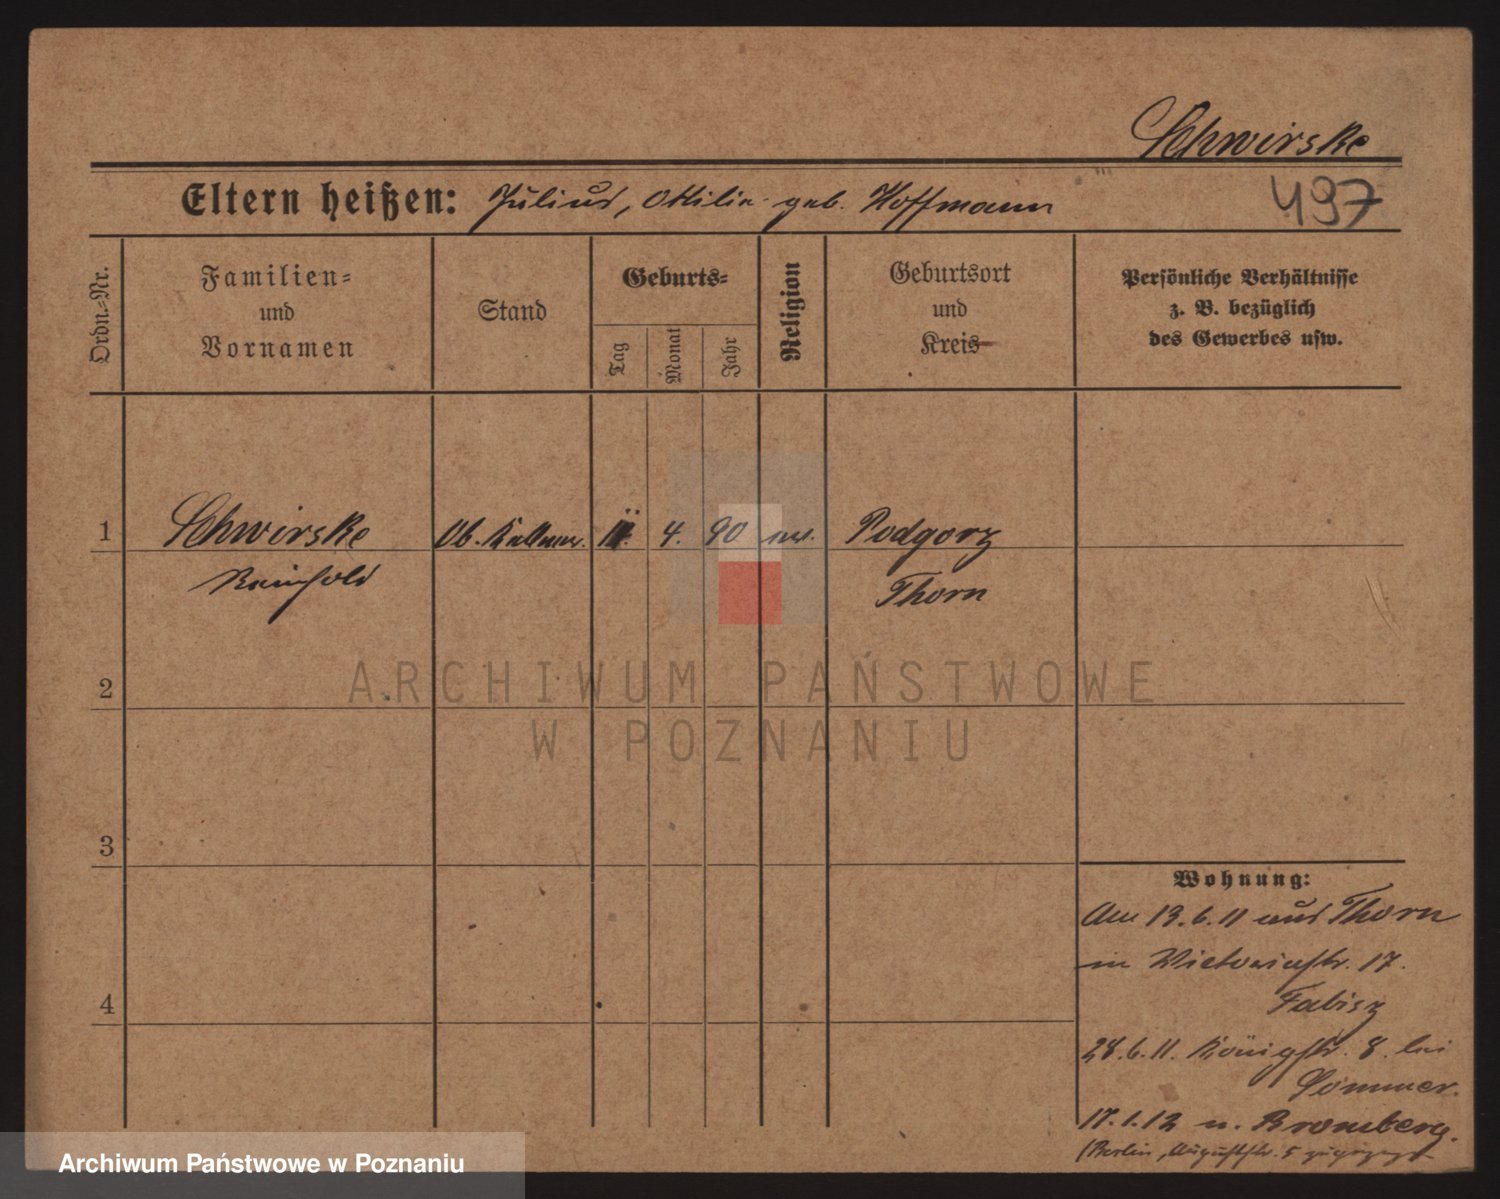 Schwirske
Eltern heißen: Julius, Ottilie geb. Hoffmann
497
Ordn.-Nr.
Familien-
und
Vornamen
Stand
Geburts-
Tag
Monat
Jahr
Religion
Geburtsort
und
Kreis
Persönliche Verhältnisse
z. B. bezüglich
des Gewerbes usw.
1 Schwirske Ob. Kellner. 4. 90 ev. Podgorz
Reinhold Thorn
2
3
4
Wohnung:
Am 19.6.11 aus Thorn
in Victoriastr. 17.
Fabisz
28.6.11. Königstr. 8. bei
Sommer.
17.1.12 n. Bromberg.
(Berlin, Auguststr. 5
ARCHIWUM PAŃSTWOWE
W POZNANIU
Archiwum Państwowe w Poznaniu